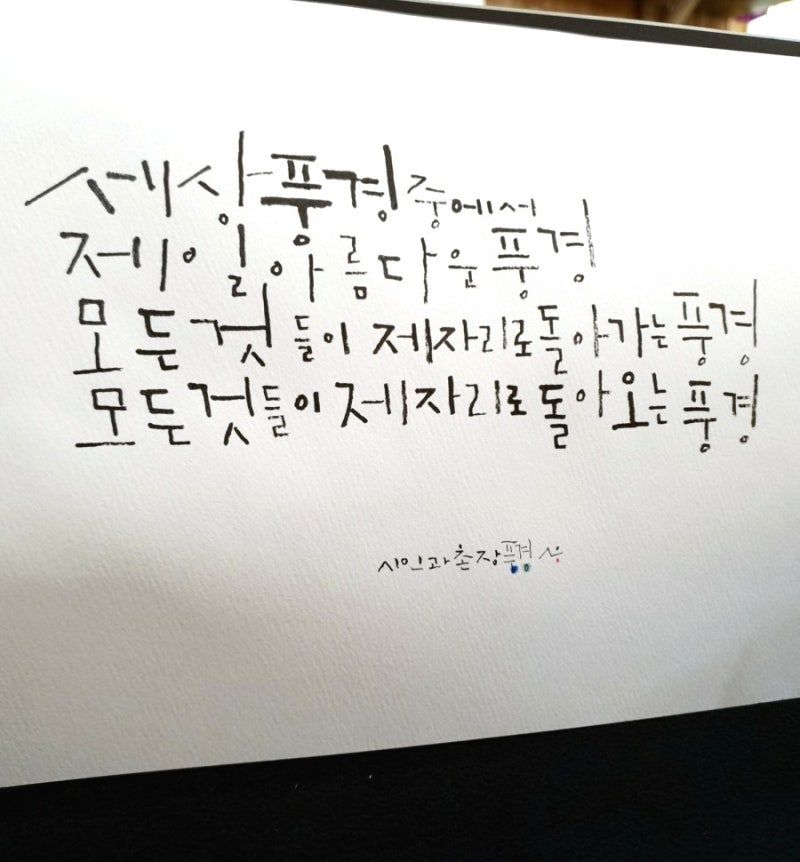 세상풍경중에서
제일아름다운풍경
모든것들이 제자리로돌아가는풍경
모든것들이 제자리로돌아오는풍경
시인과촌장풍경